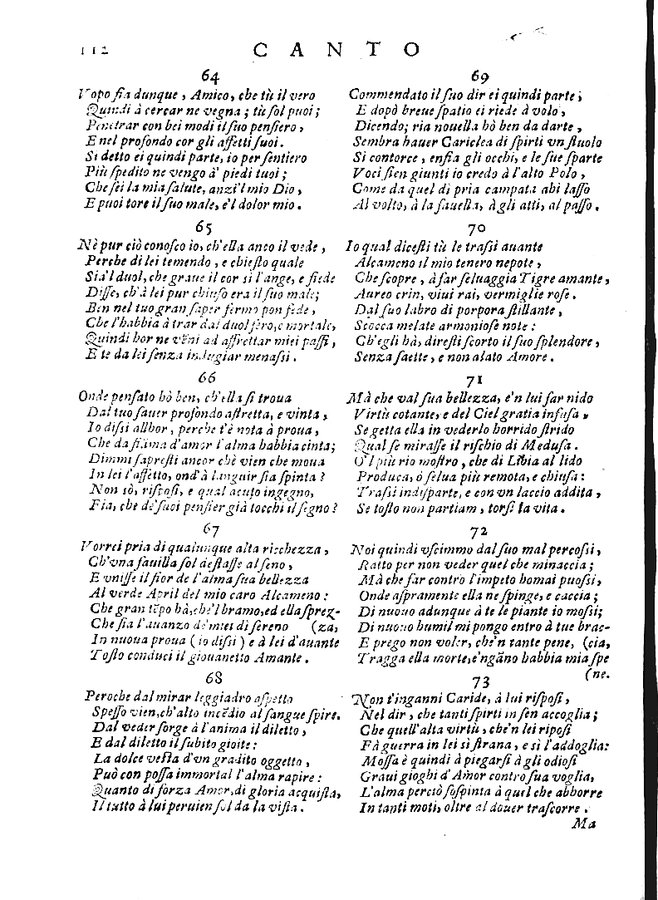 112 CANTO
64
Vopo fia dunque, Amico, che tù il vero
Quindi à cercar ne vegna; tù sol puoi;
Penetrar con bei modi il suo pensiero,
E nel profondo cor gli affetti suoi.
Sì detto ei quindi parte, io per sentiero
Più spedito ne vengo à' piedi tuoi;
Che sei la mia salute, anzi'l mio Dio,
E puoi tore il suo male, e'l dolor mio.
65
Nè pur ciò conosco io, ch'ella anco il vede,
Perche di lei temendo, e chiesto quale
Sia'l duol, che graue il cor sì l'ange, e siede
Disse, ch'à lei pur chiuso era il suo male;
Ben nel tuo gran saper fermo pon fede,
Che l'habbia à trar dal duol fero, e mortale,
Quindi hor ne vẽni ad affrettar miei passi,
E te da lei senza indugiar menassi.
66
Onde pensato hò ben, ch'ella si troua
Dal tuo sauer profondo astretta, e vinta,
Io dissi allhor, perche t'è nota à proua,
Che da sì ima d'amor l'alma habbia cinta;
Dimmi sapresti ancor chè vien che moua
In lei l'affetto, ond'à languir sia spinta?
Non sò, risposi, e qual acuto ingegno,
Fia, che de' suoi pensier già tocchi il segno?
67
Vorrei pria di qualunque alta ricchezza,
Ch'vna fauilla sol destasse al seno,
E vnisse il fior de l'alma sua bellezza
Al verde April del mio caro Alcameno:
Che gran tẽpo hà, che'l bramo, ed ella sprez-
Che sia l'auanzo de' miei dì sereno (za,
In nuoua proua (io dissi) e à lei d'auante
Tosto conduci il giouanetto Amante.
68
Peroche dal mirar leggiadro aspetto
Spesso vien, ch'alto incẽdio al sangue spire.
Dal veder sorge à l'anima il diletto,
E dal diletto il subito gioite:
La dolce vista d'vn gradito oggetto,
Può con possa immortal l'alma rapire:
Quanto di forza Amor, di gloria acquista,
Il tutto à lui peruien sol da la vista.
69
Commendato il suo dir ei quindi parte;
E dopò breue spatio ei riede à volo,
Dicendo; ria nouella hò ben da darte,
Sembra hauer Cariclea di spirti vn stuolo
Si contorce, ensia gli occhi, e le sue sparte
Voci sien giunti io credo à l'alto Polo,
Come da quel di pria campata ahi lasso
Al volto, à la fauella, à gli atti, al passo.
70
Io qual dicesti tù le trassi auante
Alcameno il mio tenero nepote,
Che scopre, à far seluaggia Tigre amante,
Aureo crin, viui rai, vermiglie rose.
Dal suo labro di porpora stillante,
Scocca melate armoniose note:
Ch'egli hà, diresti scorto il suo splendore,
Senza saette, e non alato Amore.
71
Mà che val sua bellezza, e'n lui far nido
Virtù cotante, e del Ciel gratia infusa,
Se getta ella in vederlo horrido strido
Qual se mirasse il rischio di Medusa.
O'l più rio mostro, che di Libia al lido
Produca, ò selua più remota, e chiusa:
Trassi indisparte, e con vn laccio addita,
Se tosto non partiam, torsi ta vita.
72
Noi quindi vscimmo dal suo mal percossi,
Ratto per non veder quel che minaccia;
Mà che far contro l'impeto homai puossi,
Onde aspramente ella ne spinge, e caccia;
Di nuouo adunque à te le piante io mossi;
Di nuouo humil mi pongo entro à tue brac-
E prego non voler, che'n tante pene, (cia,
Tragga ella morte, e'ngãno habbia mia spe
(ne.
73
Non t'inganni Caride, à lui risposi,
Nel dir, che tanti spirti in sen accoglia;
Che quell'alta virtù, che'n lei riposi
Fà guerra in lei sì strana, e sì l'addoglia:
Mossa è quindi à piegarsi à gli odiosi
Graui gioghi d'Amor contro sua voglia,
L'alma perciò sospinta à quel che abborre
In tanti moti, oltre al douer trascorre.
Ma